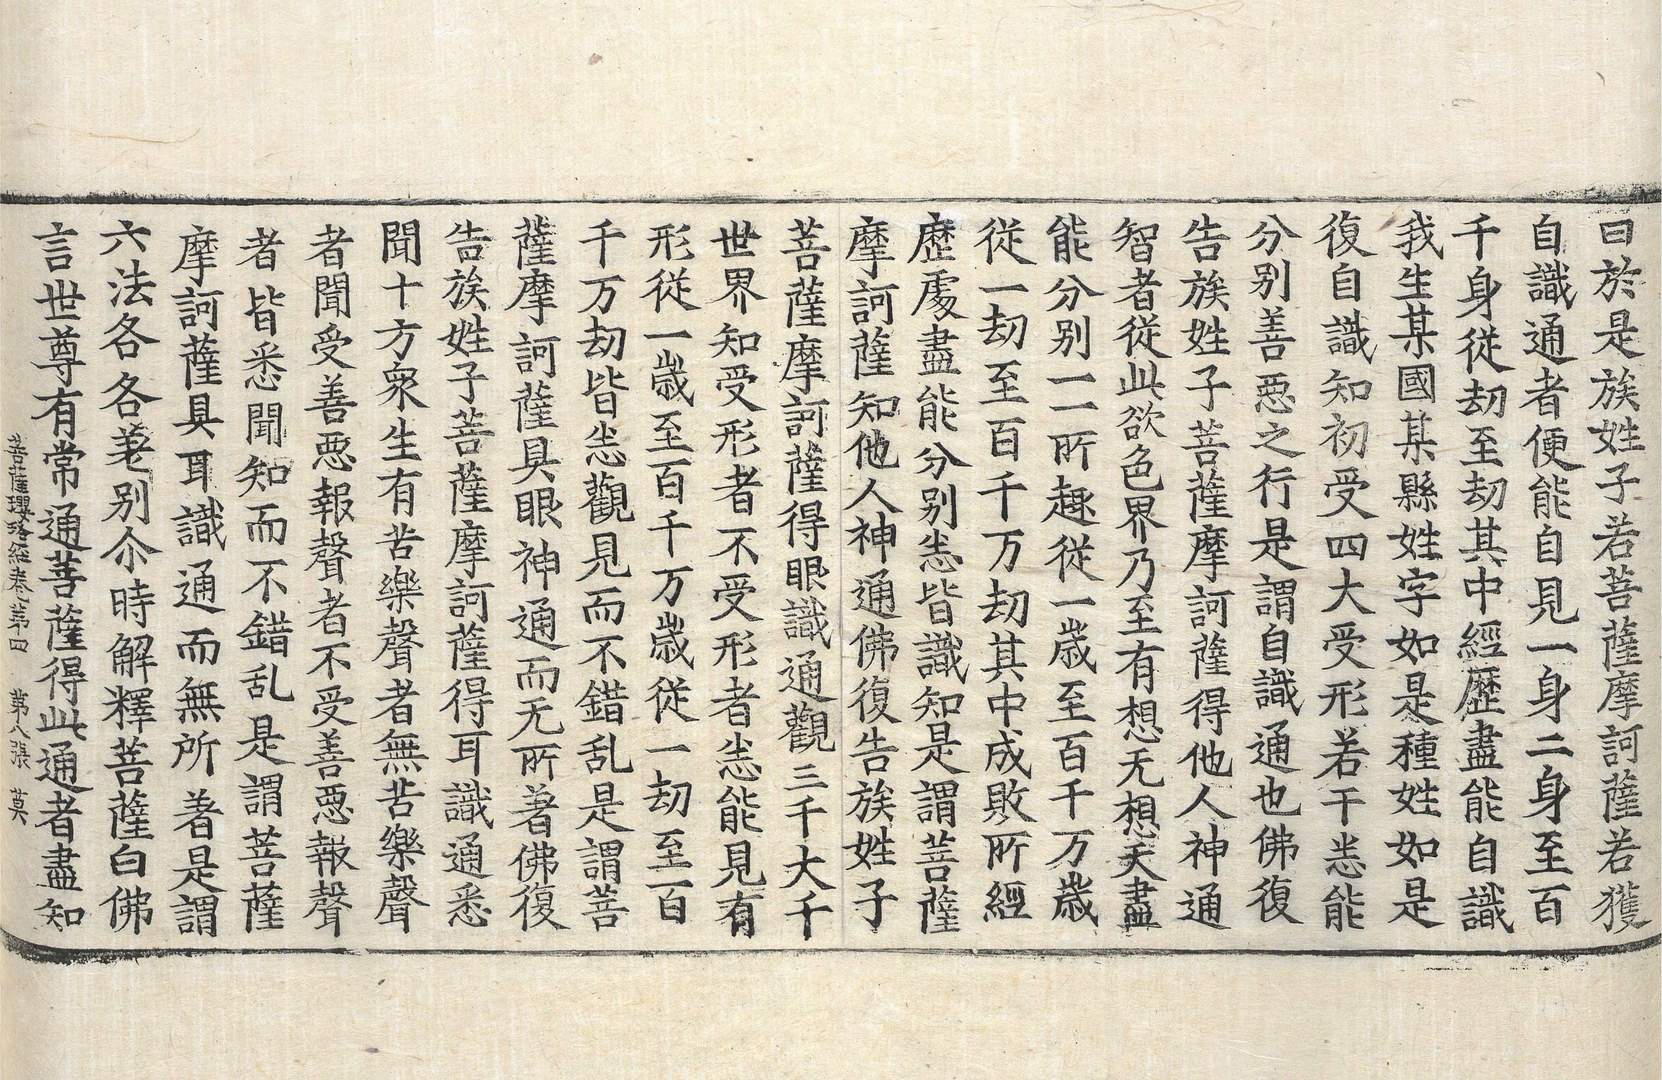 曰於是族姓子若菩薩摩訶薩若獲
自識通者便能自見一身二身至百
千身從劫至劫其中經歷盡能自識
我生某國某縣姓字如是種姓如是
復自識知初受四大受形若干悉能
分别善惡之行是謂自識通也佛復
告族姓子菩薩摩訶薩得他人神通
智者從此欲色界乃至有想无想天盡
能分别一一所趣從一歲至百千万歲
從一劫至百千万劫其中成敗所經
歷處盡能分别悉皆識知是謂菩薩
摩訶薩知他人神通佛復告族姓子
菩薩摩訶薩得眼識通觀三千大千
世界知受形者不受形者悉能見有
形從一歲至百千万歲從一劫至百
千万劫皆悉觀見而不錯乱是謂菩
薩摩訶薩具眼神通而无所著佛復
告族姓子菩薩摩訶薩得耳識通悉
聞十方衆生有苦樂聲者無苦樂聲
者聞受善惡報聲者不受善惡報聲
者皆悉聞知而不錯乱是謂菩薩
摩訶薩具耳識通而無所著是謂
六法各各差别尒時解釋菩薩白佛
言世尊有常通菩薩得此通者盡知
菩薩瓔珞經卷第四 第八張 莫